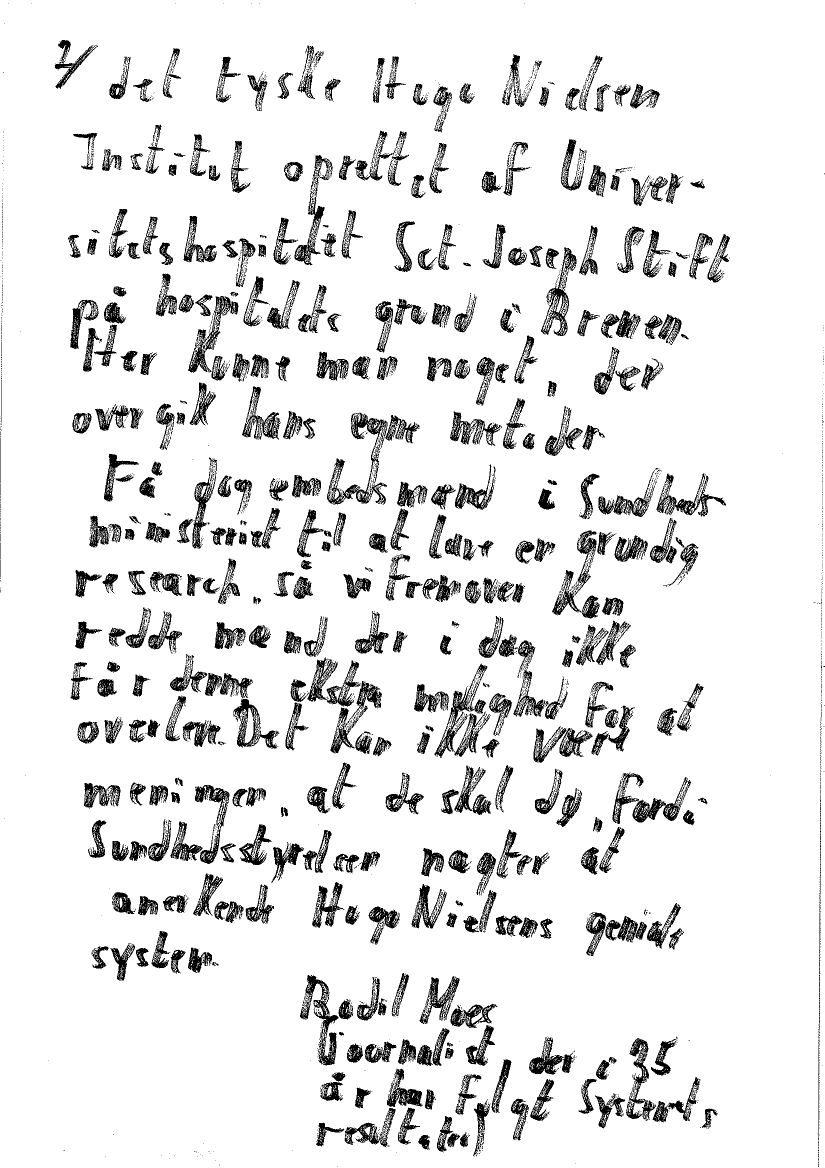 2/ det tyske Hugo Nielsen
Institut oprettet af Univer-
sitetshospitalet Sct. Joseph Stift
på hospitalets grund i Bremen.
Her kunne man noget, der
overgik hans egne metoder
Få dog embedsmænd i Sundheds-
ministeriet til at lave en grundig
research, så vi fremover kan
redde mænd der i dag ikke
får denne ekstra mulighed for at
overleve. Det kan ikke være
meningen, at de skal dø, fordi
Sundhedsstyrelsen nægter at
anerkende Hugo Nielsens geniale
system.
Bodil Moes
(Journalist der i 35
år har fulgt Systemets
resultater)